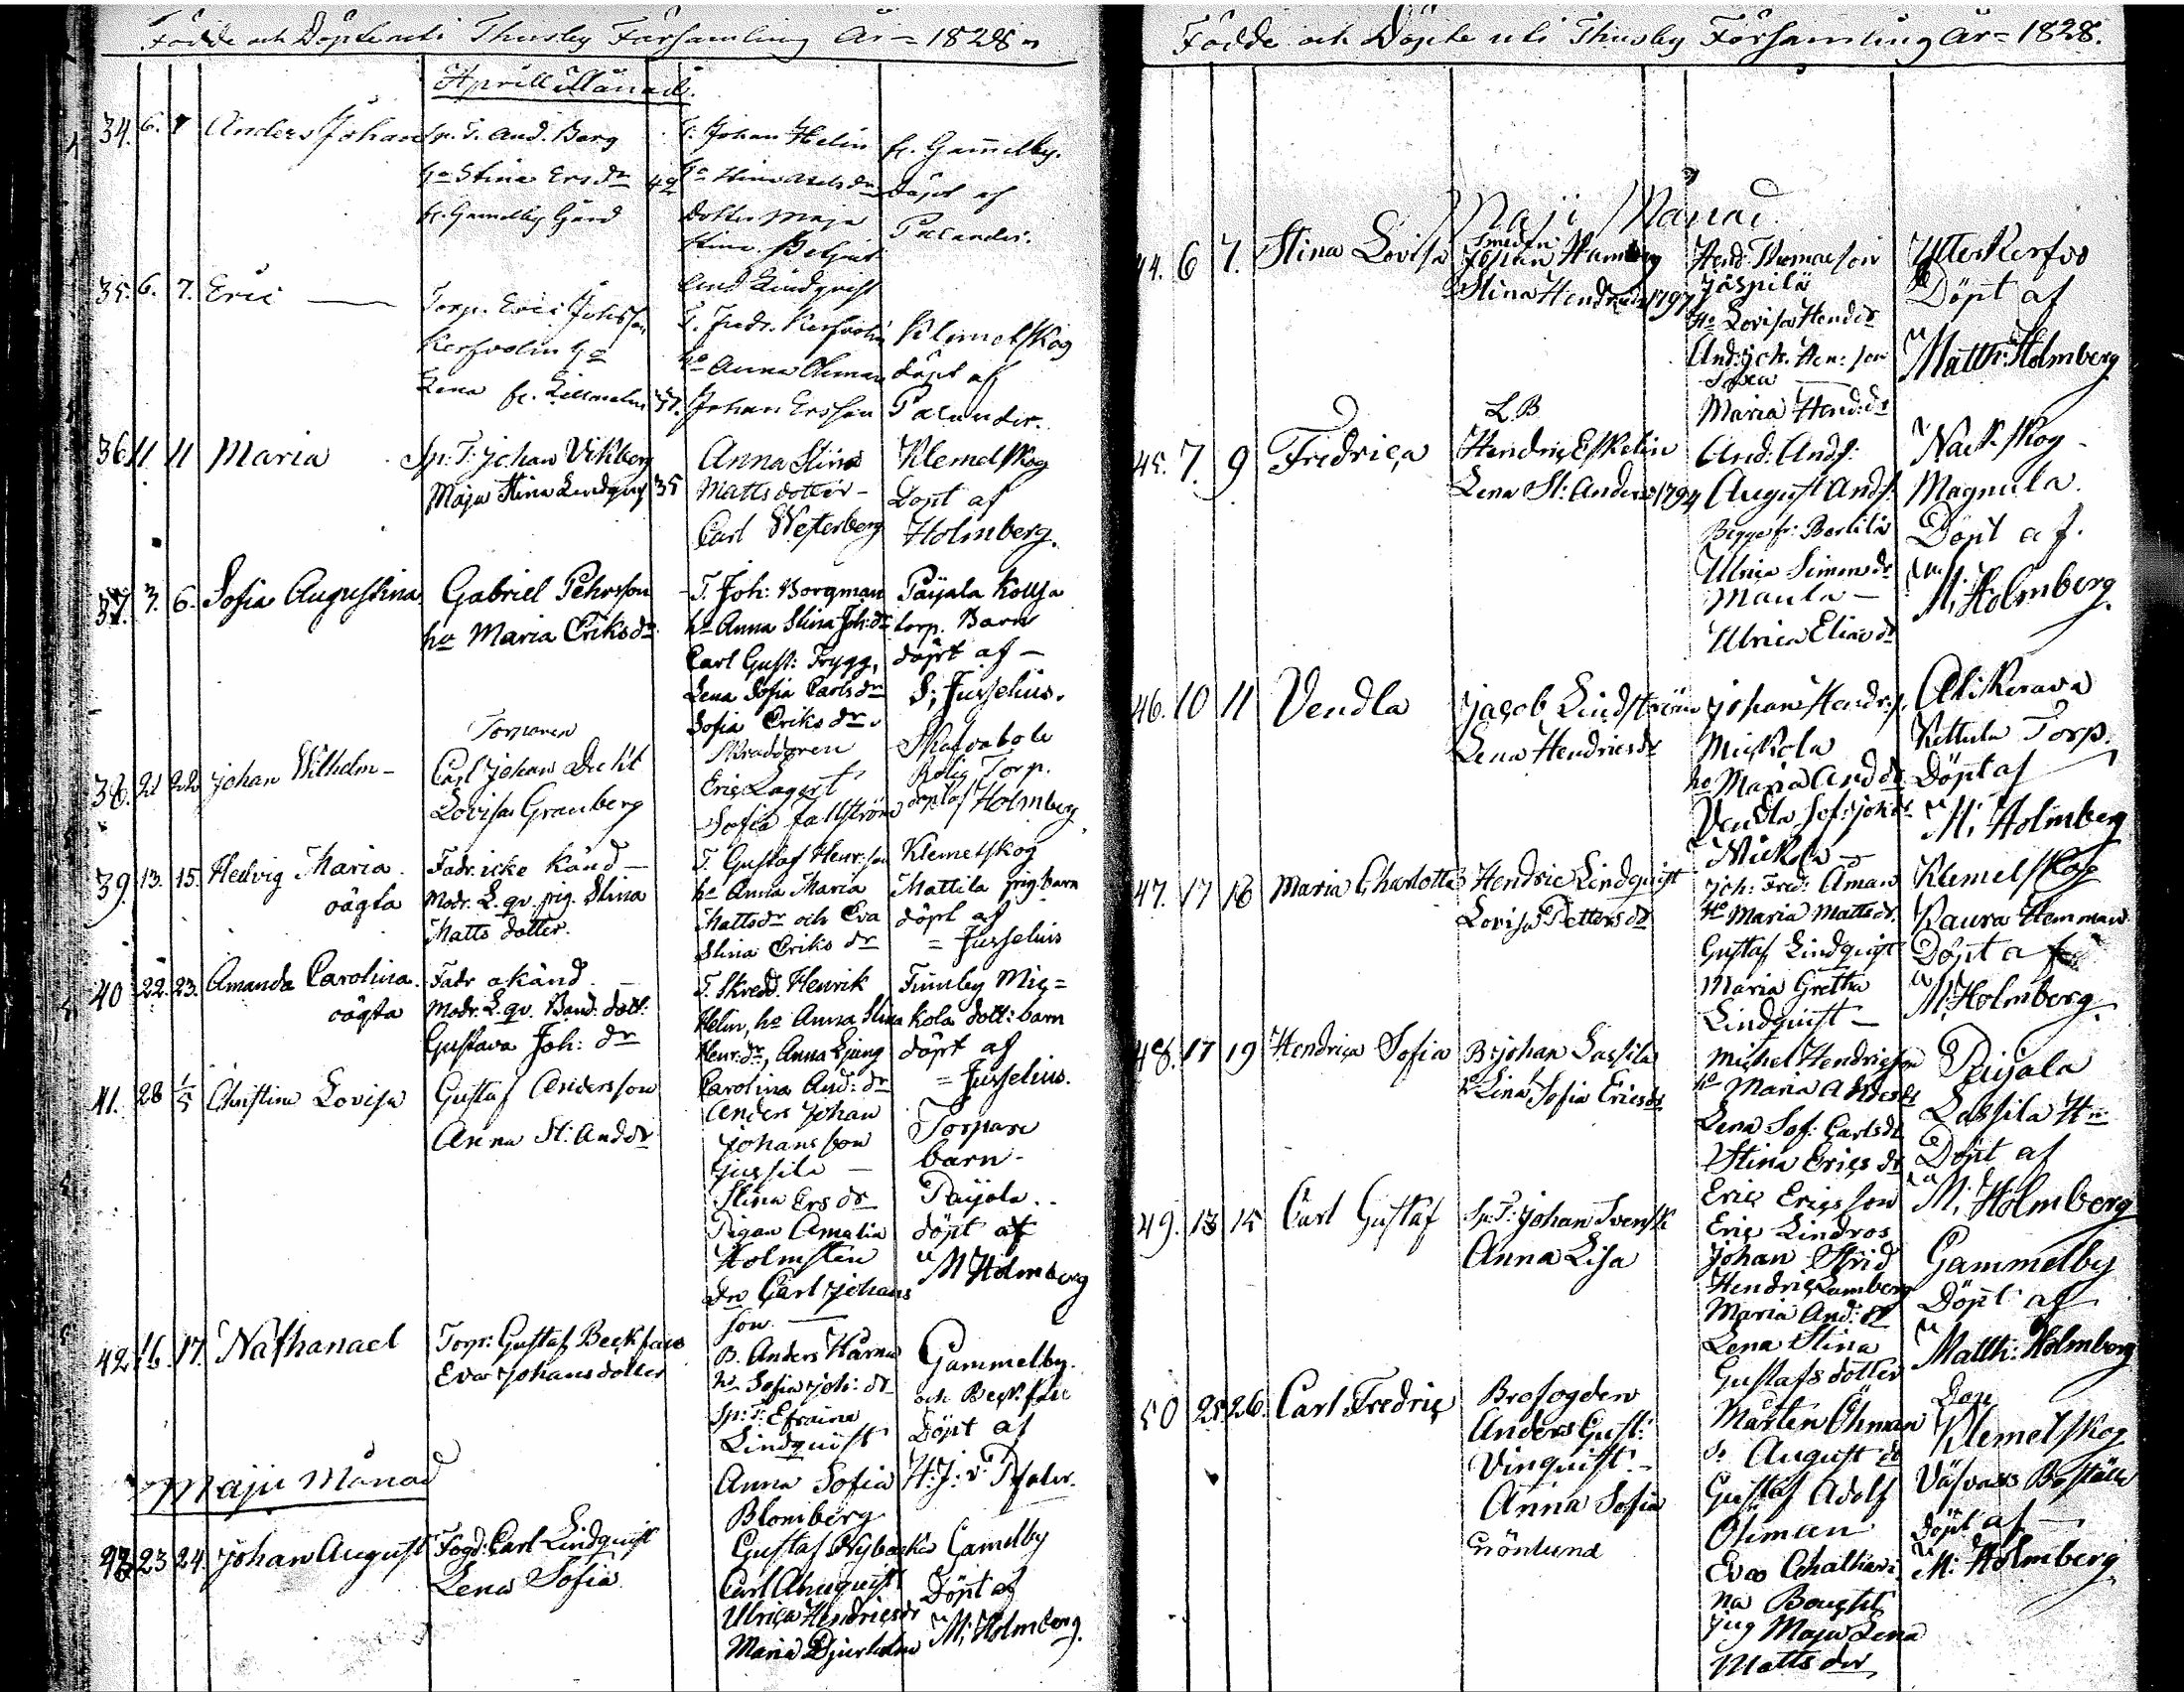 Födde och Döpte uti Thusby Församling År = 1828
Aprill Månad.
34. 6. 7 Anders Johan
Sp. T. And. Berg
ho Stina Ersdr 42
fr. Gamelby Gård
T. Johan Helin
Dotter Maja
Stina
And Lindqvist
fr. Gamelby.
döpt af
Palander.
35. 6. 7. Eric —
Torp. Eric Johsson
Kerfvolin ho
Lena fr. 37.
T. Fredr. Kerfvolin
ho Anna Öhman
Johan Ersson
Klemetskog
döpt af
Palander.
36 11 11 Maria
Sp: T: Johan Vikberg
Maja Stina Lindqvist 35
Anna Stina
Mattsdotter –
Carl Westerberg
Klemetskog
Döpt af
Holmberg.
37. 3. 6. Sofia Augustina.
Gabriel Pehrsson
ho Maria Eriksdr
T. Joh: Borgman
ho Anna Stina Joh: dr
Carl Gust: Trygg,
Lena Sofia Carlsdr
Sofia Eriksdr.
Paijala Kollsa
torp. Barn
döpt af –
S; Jusselius.
38. 21 22 Johan Wilhelm –
Torparen
Carl Johan
Lovisa Granberg
Skraddaren
Eric Lagert
Sofia Fallström
Skafvabole
Rolig Torp.
döpt af Holmberg
39. 13. 15. Hedvig Maria.
oägta
Fadr. icke känd –
Modr. L. qv. pig. Stina
Matts dotter.
T. Gustaf Henr:son
ho Anna Maria
Mattsdr och Eva
Stina Eriks dr
Klemetskog
Mattila pig. barn
döpt af
= Jusselius
40 22. 23. Amanda Carolina.
oägta
Fadr okänd –
Modr. L. qv. Bond. dott:
Gustava Joh: dr
T. Skredd. Henrik
Helin, ho Anna Stina
Henr: dr, Anna Ljung
Carolina And: dr
Finnby Mic=
kola dott: barn
döpt af
= Jusselius.
41. 28 1/5 Christina Lovisa
Gustaf Andersson
Anna St: And dr
Anders Johan
Johansson
Jussila –
Stina Ers dr
Pigan Amalia
Holmstén
Dr Carl Johans
son. –
Torpare
barn –
Paijola..
döpt af
M Holmberg
42. 16. 17. Nathanael
Torp: Gustaf Beckfors
Eva Johansdotter
B. Anders
ho Sofia Joh: dr
Sp: T: Efraim
Lindqvist
Anna Sofia
Blomberg
Gammelby.
och
Döpt af
H: J: v: Pfaler.
Maji Månad
43 23 24. Johan August
Fogd: Carl Lindqvist
Lena Sofia
Gustaf Nybacka
Carl Ahnqvist
Ulrica Hendricsdr
Maria Djurholm
Gamelby
Döpt af
M; Holmberg.
Födde och Döpte uti Thusby Församling År = 1828.
Maji Månad.
44. 6 7. Stina Lovisa
Smeden
Johan Hamberg
Stina Hendricsdr 1797
Hend: Thomasson
Jäspilä
Ho Lovisa Hend dr
And: Joh. Hen: son
Maria Hend: dr
Ytterkerfvo
Döpt af
Matth: Holmberg
45. 7. 9 Fredrica
L. B
Hendric Eskelin
Lena St: Andersdr 1794
And: Ands:
August Ands:
Begge fr: Bertila
Ulrica Simonsdr
Maula –
Ulrica Elia dr
Nackskog –
Magnula.
Döpt af.
M; Holmberg.
46. 10 11 Vendla
Jacob Lindström
Lena Hendricsdr
Johan Hendr: s.
Mickola
ho Maria And dr
Vendla Sof: Joh dr
Mickola –
Alikerava
Kettula Torp.
Döpt af
M; Holmberg
47. 17 18 Maria Charlotta
Hendric Lindqvist
Lovisa Pettersdr
Joh: Fred: Åman
Ho Maria Mattsdr.
Gustaf Lindqvist
Maria Gretha
Lindqvist –
Klemetskog
Kaura Hemman
Döpt af
M; Holmberg.
48. 17 19 Hendrica Sofia
B Johan Lassila
Lina Sofia Ericsdr
Michel Hendricsson
ho Maria Andersdr
Lena Sof: Carlsdr
Stina Erics dr
Eric Ericsson
Paijala
Lassila Hn
Döpt af
M; Holmberg
49. 13 15 Carl Gustaf
Sp: T: Johan Svensk
Anna Lisa
Eric Lindros
Johan Strid
Hendric Lamberg
Maria And: dr
Lena Stina
Gustafsdotter
Gammelby
Döpt af
Matth: Holmberg
50 25 26. Carl Fredric
Brofogden
Anders Gust:
Vinqvist. –
Anna Sofia
Grönlund
Mårten Öhman
August
Gustaf Adolf
Öhman
Eva Chathari
na
Jug Maja Lena
Matts dr
Klemetskog
Boställe
Döpt af –
M: Holmberg